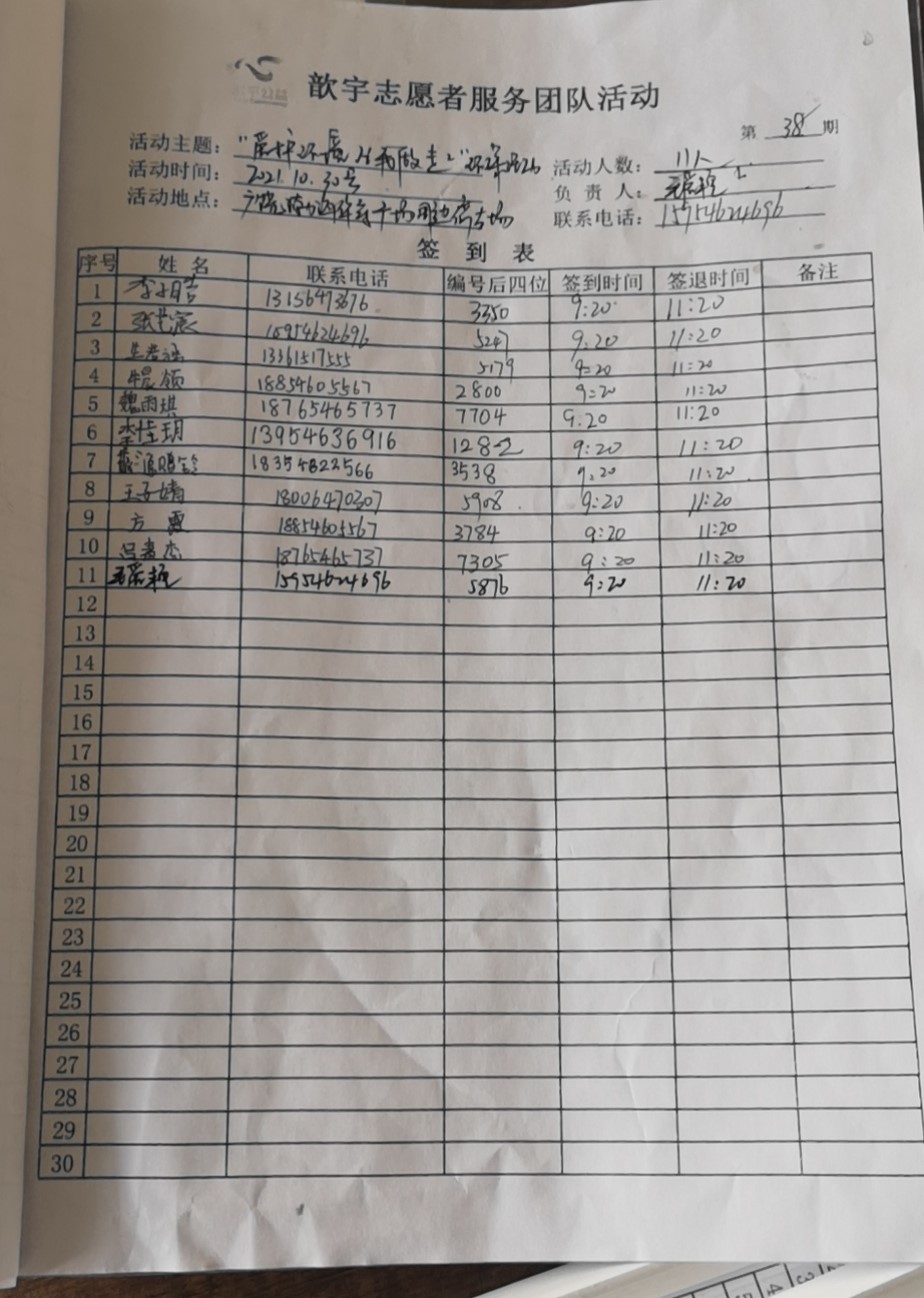 歆宇志愿者服务团队活动
第 38 期
活动主题：
活动人数： 11人
活动时间： 2021.10.30号
负责人：
活动地点：
联系电话： 15954624696
签到表
序号 姓名 联系电话 编号后四位 签到时间 签退时间 备注
1 13156473676 3350 9:20 11:20
2 15954624696 5247 9:20 11:20
3 13361517555 5179 9:20 11:20
4 18854605567 2800 9:20 11:20
5 魏雨琪 18765465737 7704 9:20 11:20
6 李佳玥 13954636916 1282 9:20 11:20
7 18354822566 3538 9:20 11:20
8 王子婧 18006470307 5908 9:20 11:20
9 方 18854605567 3784 9:20 11:20
10 吕孝杰 18765465737 7305 9:20 11:20
11 15954624696 5876 9:20 11:20
12
13
14
15
16
17
18
19
20
21
22
23
24
25
26
27
28
29
30